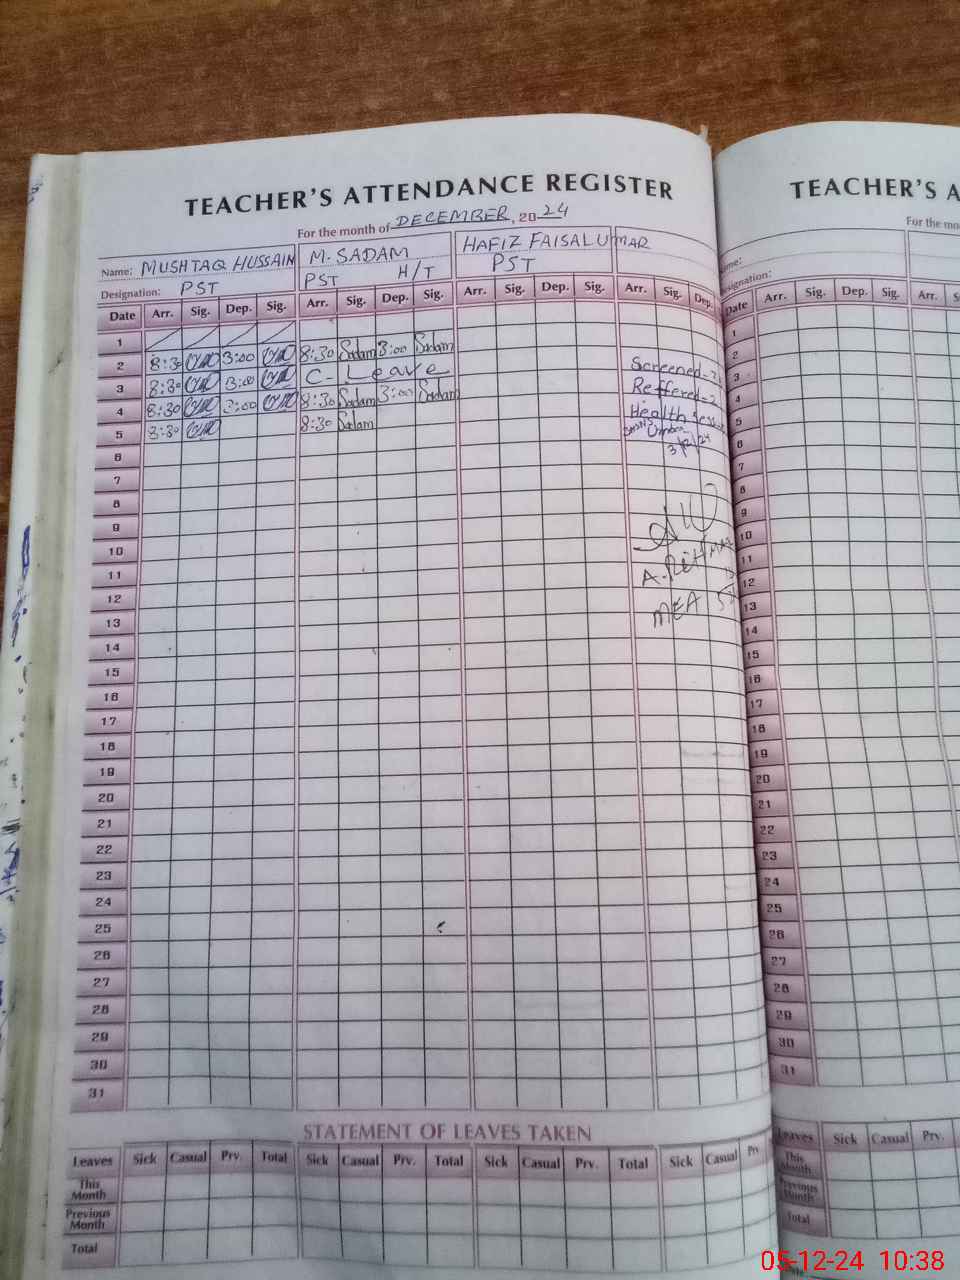 TEACHER'S ATTENDANCE REGISTER
For the month of DECEMBER, 2024
Name: MUSHTAQ HUSSAIN M. SADAM HAFIZ FAISAL UMAR
Designation: PST PST H/T PST
Date Arr. Sig. Dep. Sig. Arr. Sig. Dep. Sig. Arr. Sig. Dep. Sig. Arr. Sig. Dep.
1
2 8:30 3:00 8:30 Sadam 3:00 Sadam
3 8:30 3:00 C- Leave
4 8:30 3:00 8:30 Sadam 3:00 Sadam
5 8:30 8:30 Sadam
6
7
8
9
10
11
12
13
14
15
16
17
18
19
20
21
22
23
24
25
26
27
28
29
30
31
Screened-
Reffered-
Health
3/12/24
A. REHMAN
MEA
STATEMENT OF LEAVES TAKEN
Leaves Sick Casual Prv. Total Sick Casual Prv. Total Sick Casual Prv. Total Sick Casual Prv
This Month
Previous Month
Total
TEACHER'S A
For the mo
Name:
Designation:
Date Arr. Sig. Dep. Sig. Arr. S
1
2
3
4
5
6
7
8
9
10
11
12
13
14
15
16
17
18
19
20
21
22
23
24
25
26
27
28
29
30
31
Leaves Sick Casual Prv. Total Sick
This Month
Previous Month
Total
05-12-24 10:38